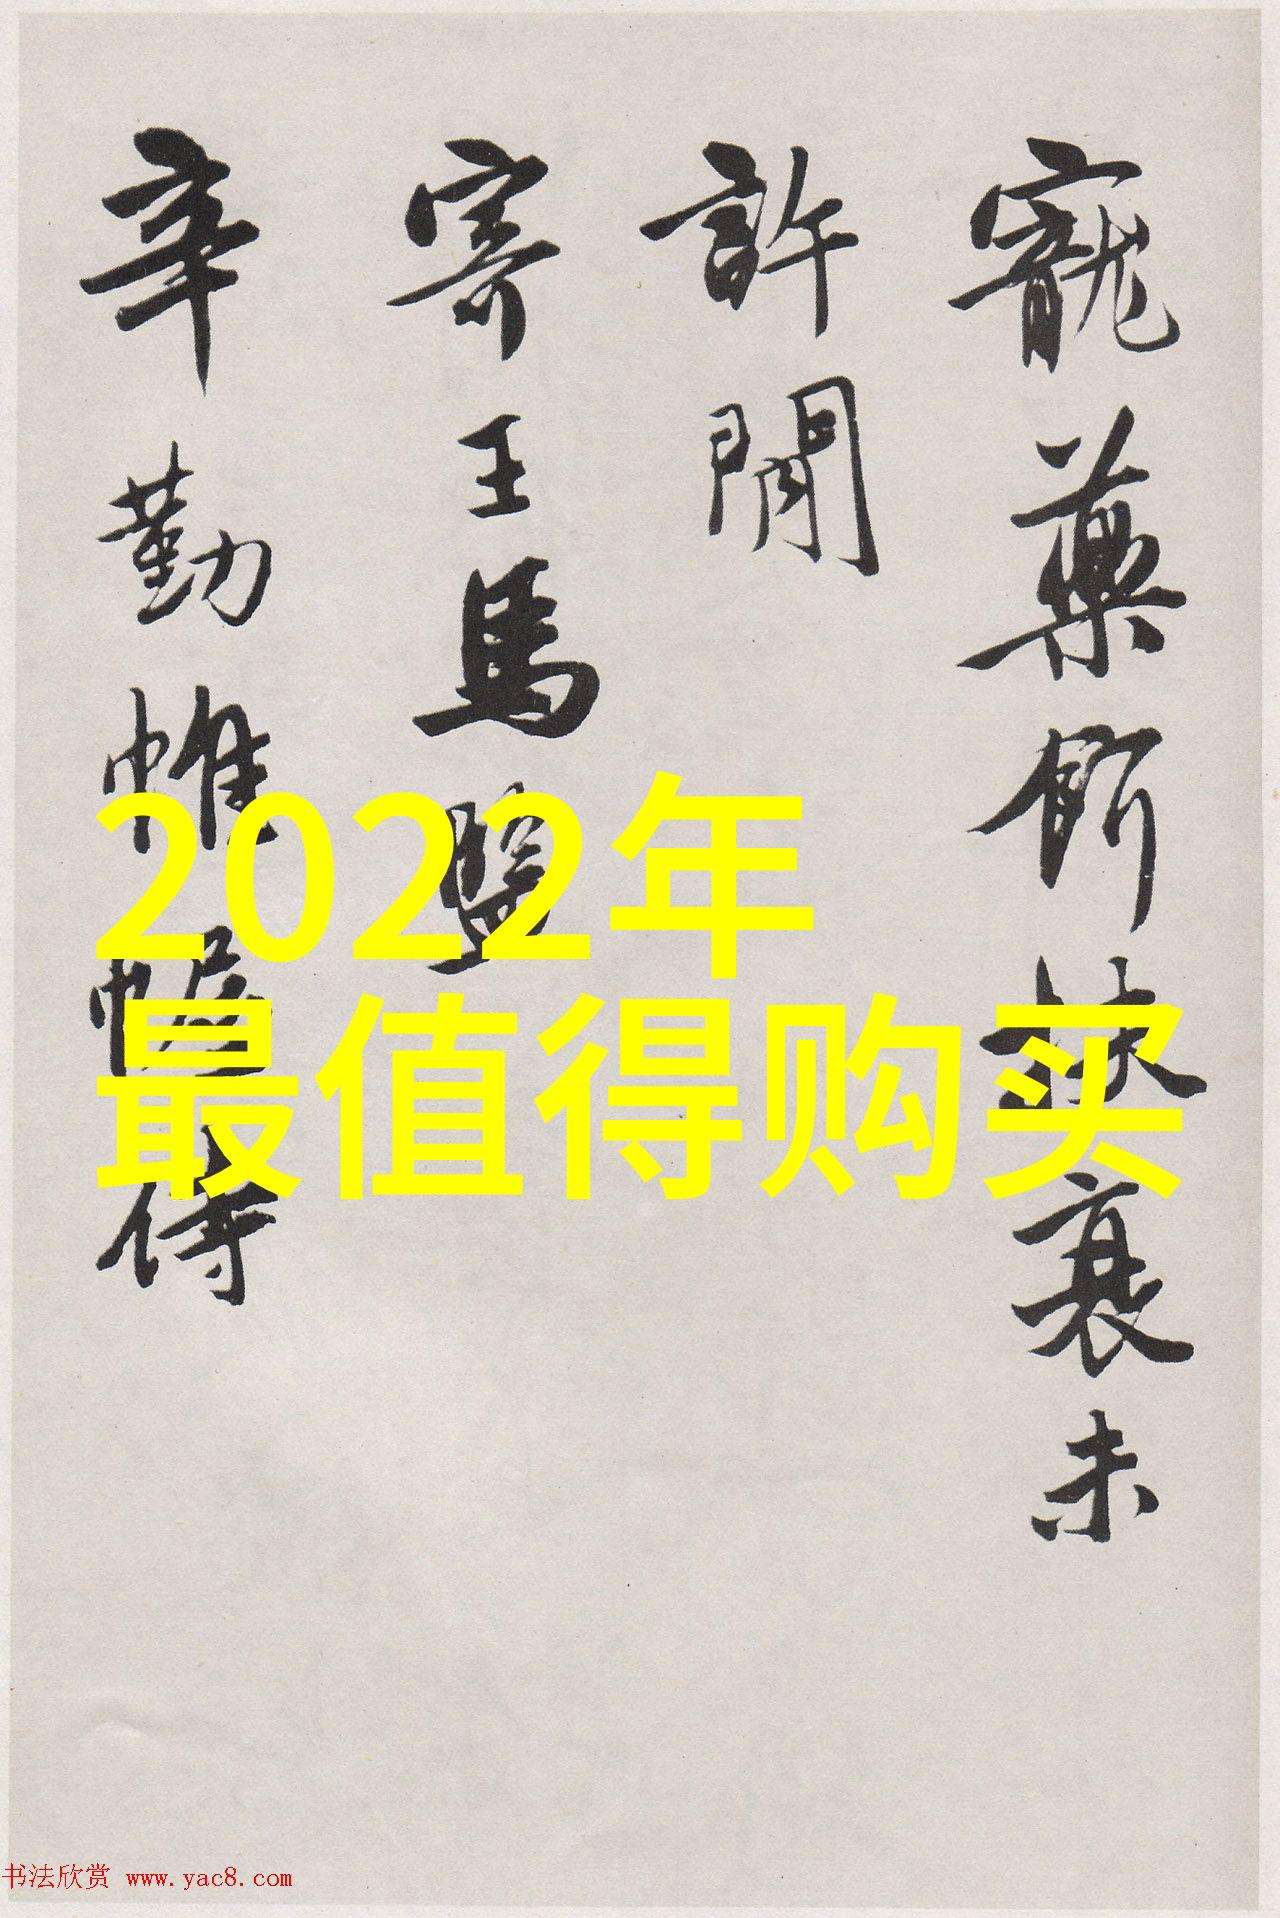 寵藥餌扶衰未
許閒
寄王馬盟
辛勤帷幄侍
2022年
最值得购买
书法欣赏 www.yac8.com